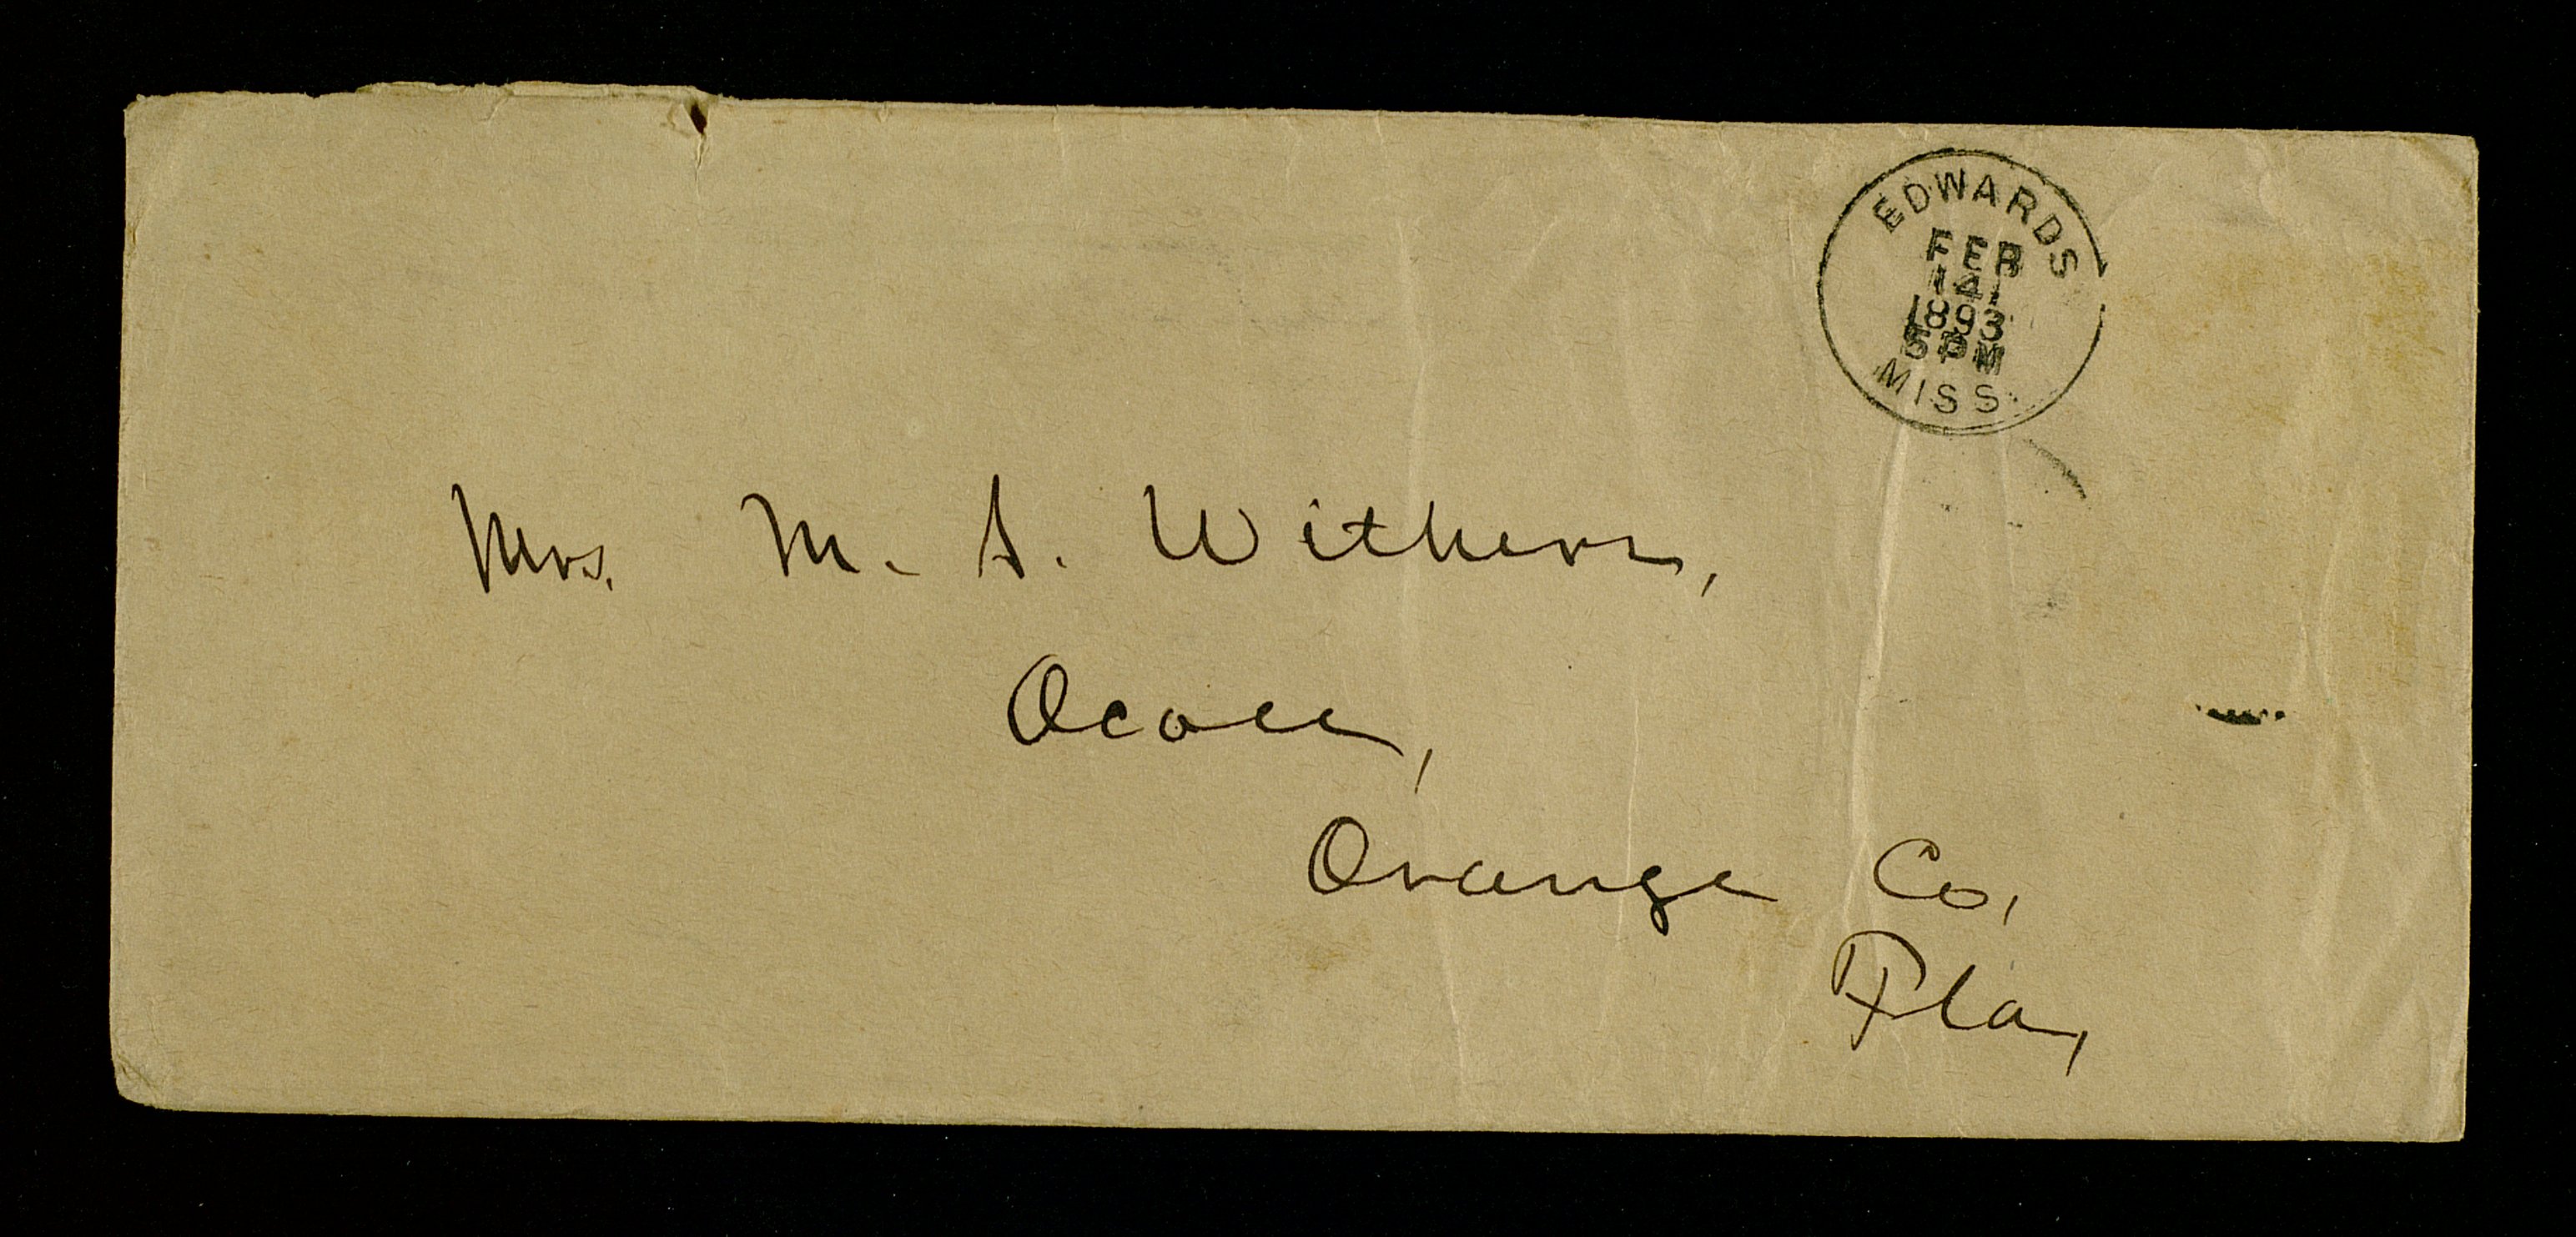 EDWARDS
FEB
14
1893
5 PM
MISS.
Mrs. M. S. Withers,
Ocoee,
Orange Co,
Fla,